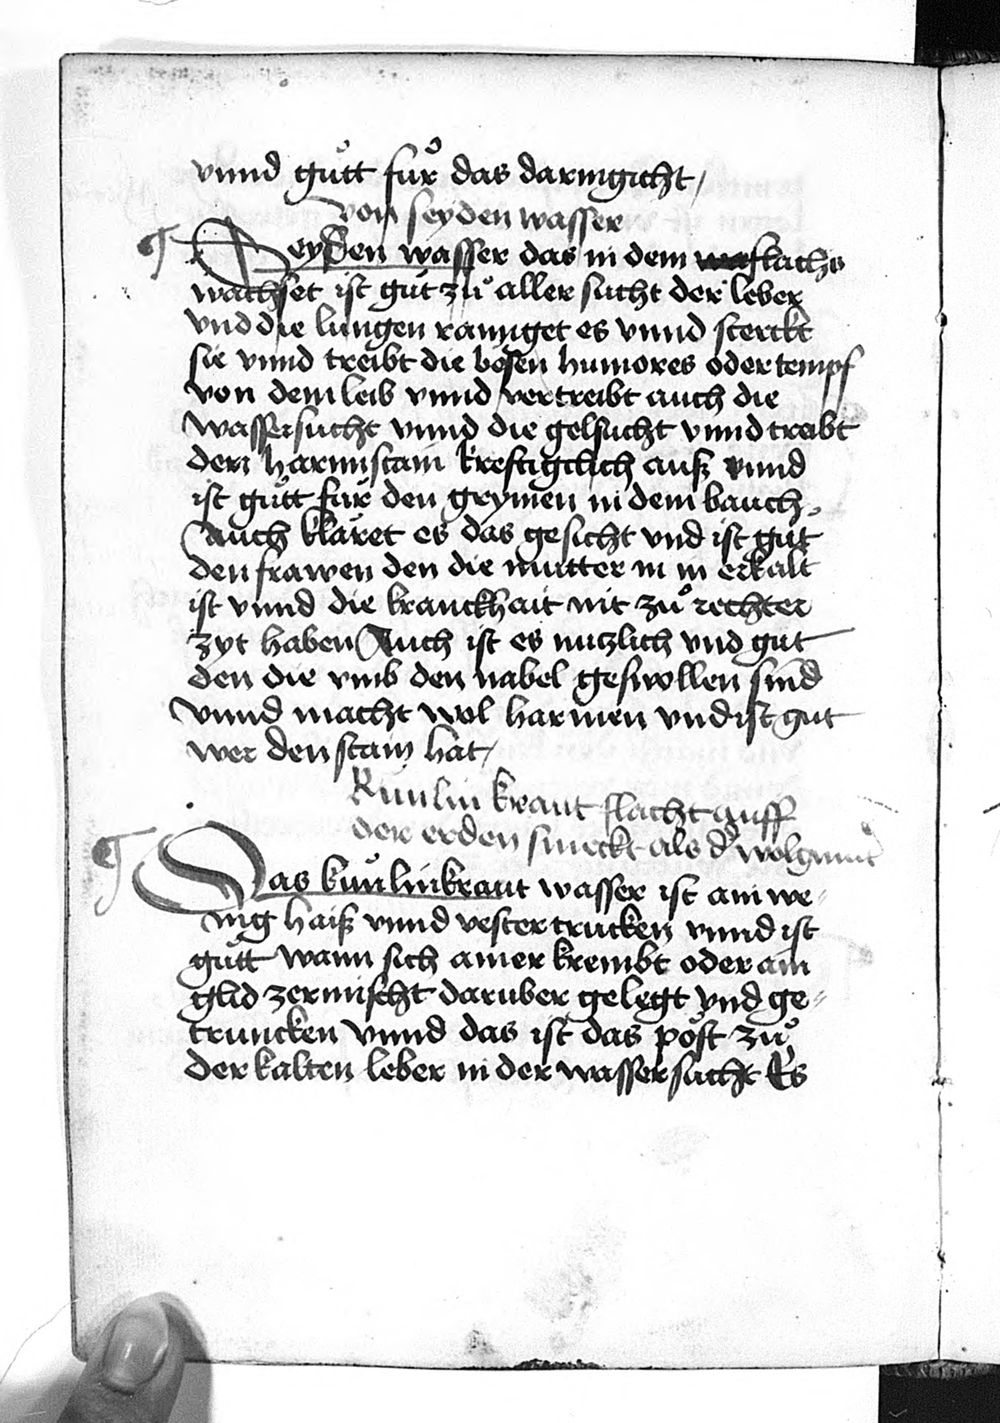 vnnd gůtt fůr das darmgicht /
von seyden wasser
¶ Seyden wasser das in dem flachs
wachset ist gůt zů aller sucht der leber
vnd die lungen rainiget es vnnd sterckt
sie vnnd treibt die bösen humores oder tempf
von dem leib vnnd vertreibt auch die
wassersucht vnnd die gelsucht vnnd treibt
den harmstain kreftigclich auß vnnd
ist gůtt fůr den grymen in dem bauch.
Auch kläret es das gesicht vnd ist gůt
den frawen den die mutter in in erkalt
ist vnnd die kranckhait nit zů rechter
zyt haben Auch ist es nutzlich vnd gůt
den die vmb den nabel geswollen sind
vnnd macht wol harnen vnd ist gut
wer den stain hat /
Kunlin kraut flacht auff
der erden smeckt als d' wolgmut
¶ Das kůnlinkraut wasser ist ain we-
nig haiß vnnd vester trucken vnnd ist
gůtt wann sich ainer krembt oder ain
glid zermischt daruber gelegt vnd ge-
truncken vnnd das ist das pöst zů
der kalten leber in der wassersucht Es